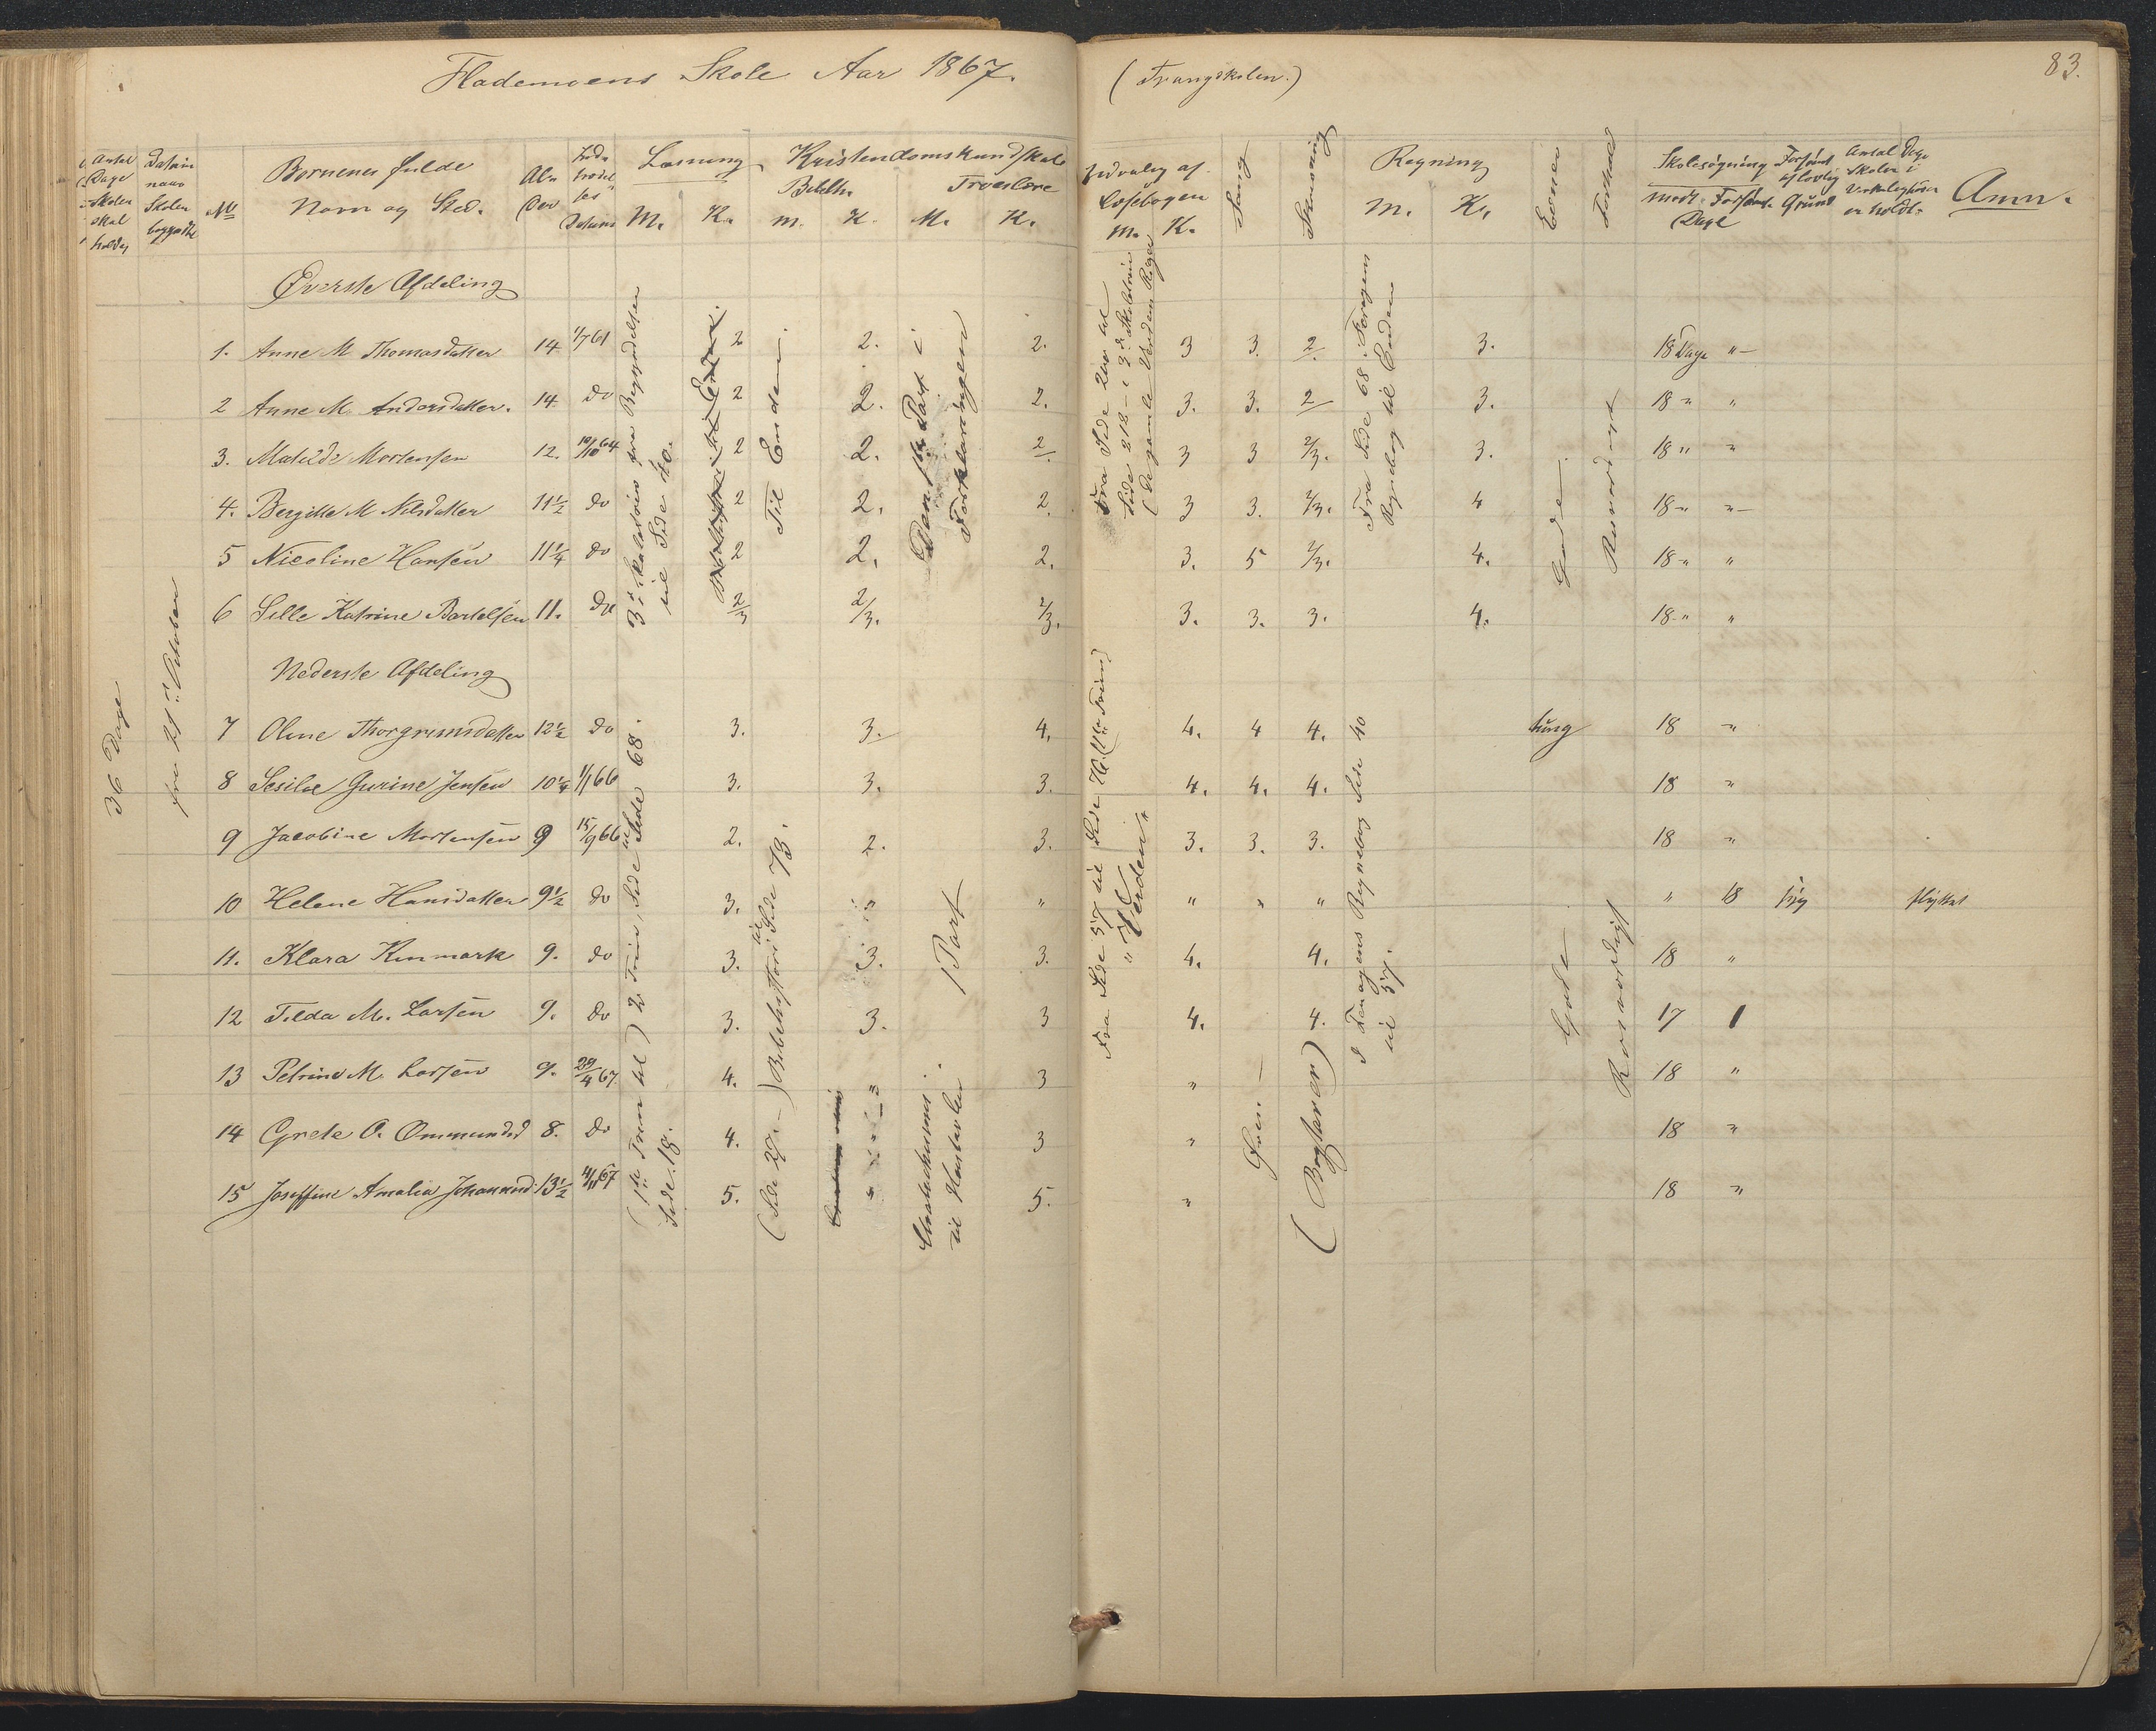 Flademoens Skole Aar 1867. (Trangskolen.) 83.
Antal Dage Skolen skal holdes
Datum naar Skolen begyndte
No
Børnenes fulde Navn og Sted.
Alder
Indtrædelses Datum
Læsning M. K.
Kristendomskundskab
Bibelh. M. K.
Troeslære M. K.
Udvalg af Læsebogen M. K.
Sang
Skrivning
Regning M. K.
Evner
Forhold
Skolesøgning
mødt Dage
Forsømt
Forsømt af lovlig Grund
Antal Dage Skolen i Virkeligheden er holdt
Anm.
36 Dage
fra 21de Oktober
Øverste Afdeling
1. Anne M Thomasdatter 14 1/7 61 2 2. 2. 3 3. 2. 3. 18 Dage "
2 Anne M. Andersdatter. 14 do 2 2. 2. 3. 3. 2 3. 18 " "
3. Matilde Mortensen 12. 10/10 64 2 2. 2 3 3 2/3. 3. 18 " "
4. Bergitte M Nilsdatter 11½ do 2 2. 2. 3 3. 2/3. 4 18 " "
5 Nicoline Hansen 11¼ do 2 2. 2. 3. 5 2/3. 4. 18 " "
6 Sille Katrine Bartelsen 11. do 2/3 2/3. 2/3. 3. 3. 3. 4. 18 " "
3die Skoletrin fra Begyndelsen til Side 40.
Til Enden.
Den 1ste Part i Forklaringen
Fra Side 240 til Side 312 – i 3die Skoletrin
(De gamle Verdens Riger
Fra Side 68 i Foragens Regnebog til Enden
Gode
Rosværdigt
Nederste Afdeling
7 Oline Thorgrimsdatter 12½ do 3. 3. 4. 4. 4 4. tung 18 "
8 Sesilie Gurine Jensen 10¼ 1/1 66 3. 3. 3. 4. 4. 4. 18 "
9 Jacobine Mortensen 9 15/9 66 2. 2. 3. 3. 3. 3. 18 "
10 Helene Hansdatter 9½ do 3. " " " " " " 18 syg flyttet
11. Klara Kinmark 9. do 3. 3. 3. 4. 4. 18 "
12 Tilda M. Larsen 9. do 3. 3. 3 4. 4. 17 1
13 Petrine M. Larsen 9. 29/4 67. 4. " 3 " 18 "
14 Grete O. Ommundsd 8. do 4. " 3 " 18 "
15 Joseffine Amalia Johannesd. 13½ 4/11 67 5. " 5. " 18 "
(1ste Trin til Side 18.) 2. Trin, Side til Side 68.
(Side 29 –) Bibelhistorie til Side 73.
1 Part
til Hustavlen
Fra Side 57 til Side 76 (1ste Trin)
" Verden "
(Bogstaver)
I Foragens Regnebog Side 40 til 57.
Gode
Rosværdigt